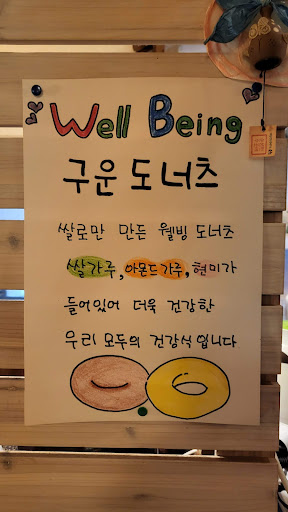 Well Being
구운 도너츠
쌀로만 만든 웰빙 도너츠
쌀가루, 아몬드가루, 현미가
들어있어 더욱 건강한
우리 모두의 건강식입니다.